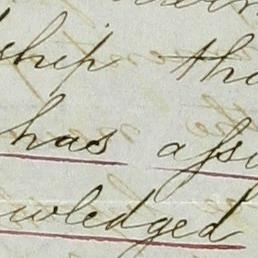 ship tha
has assu
wledged